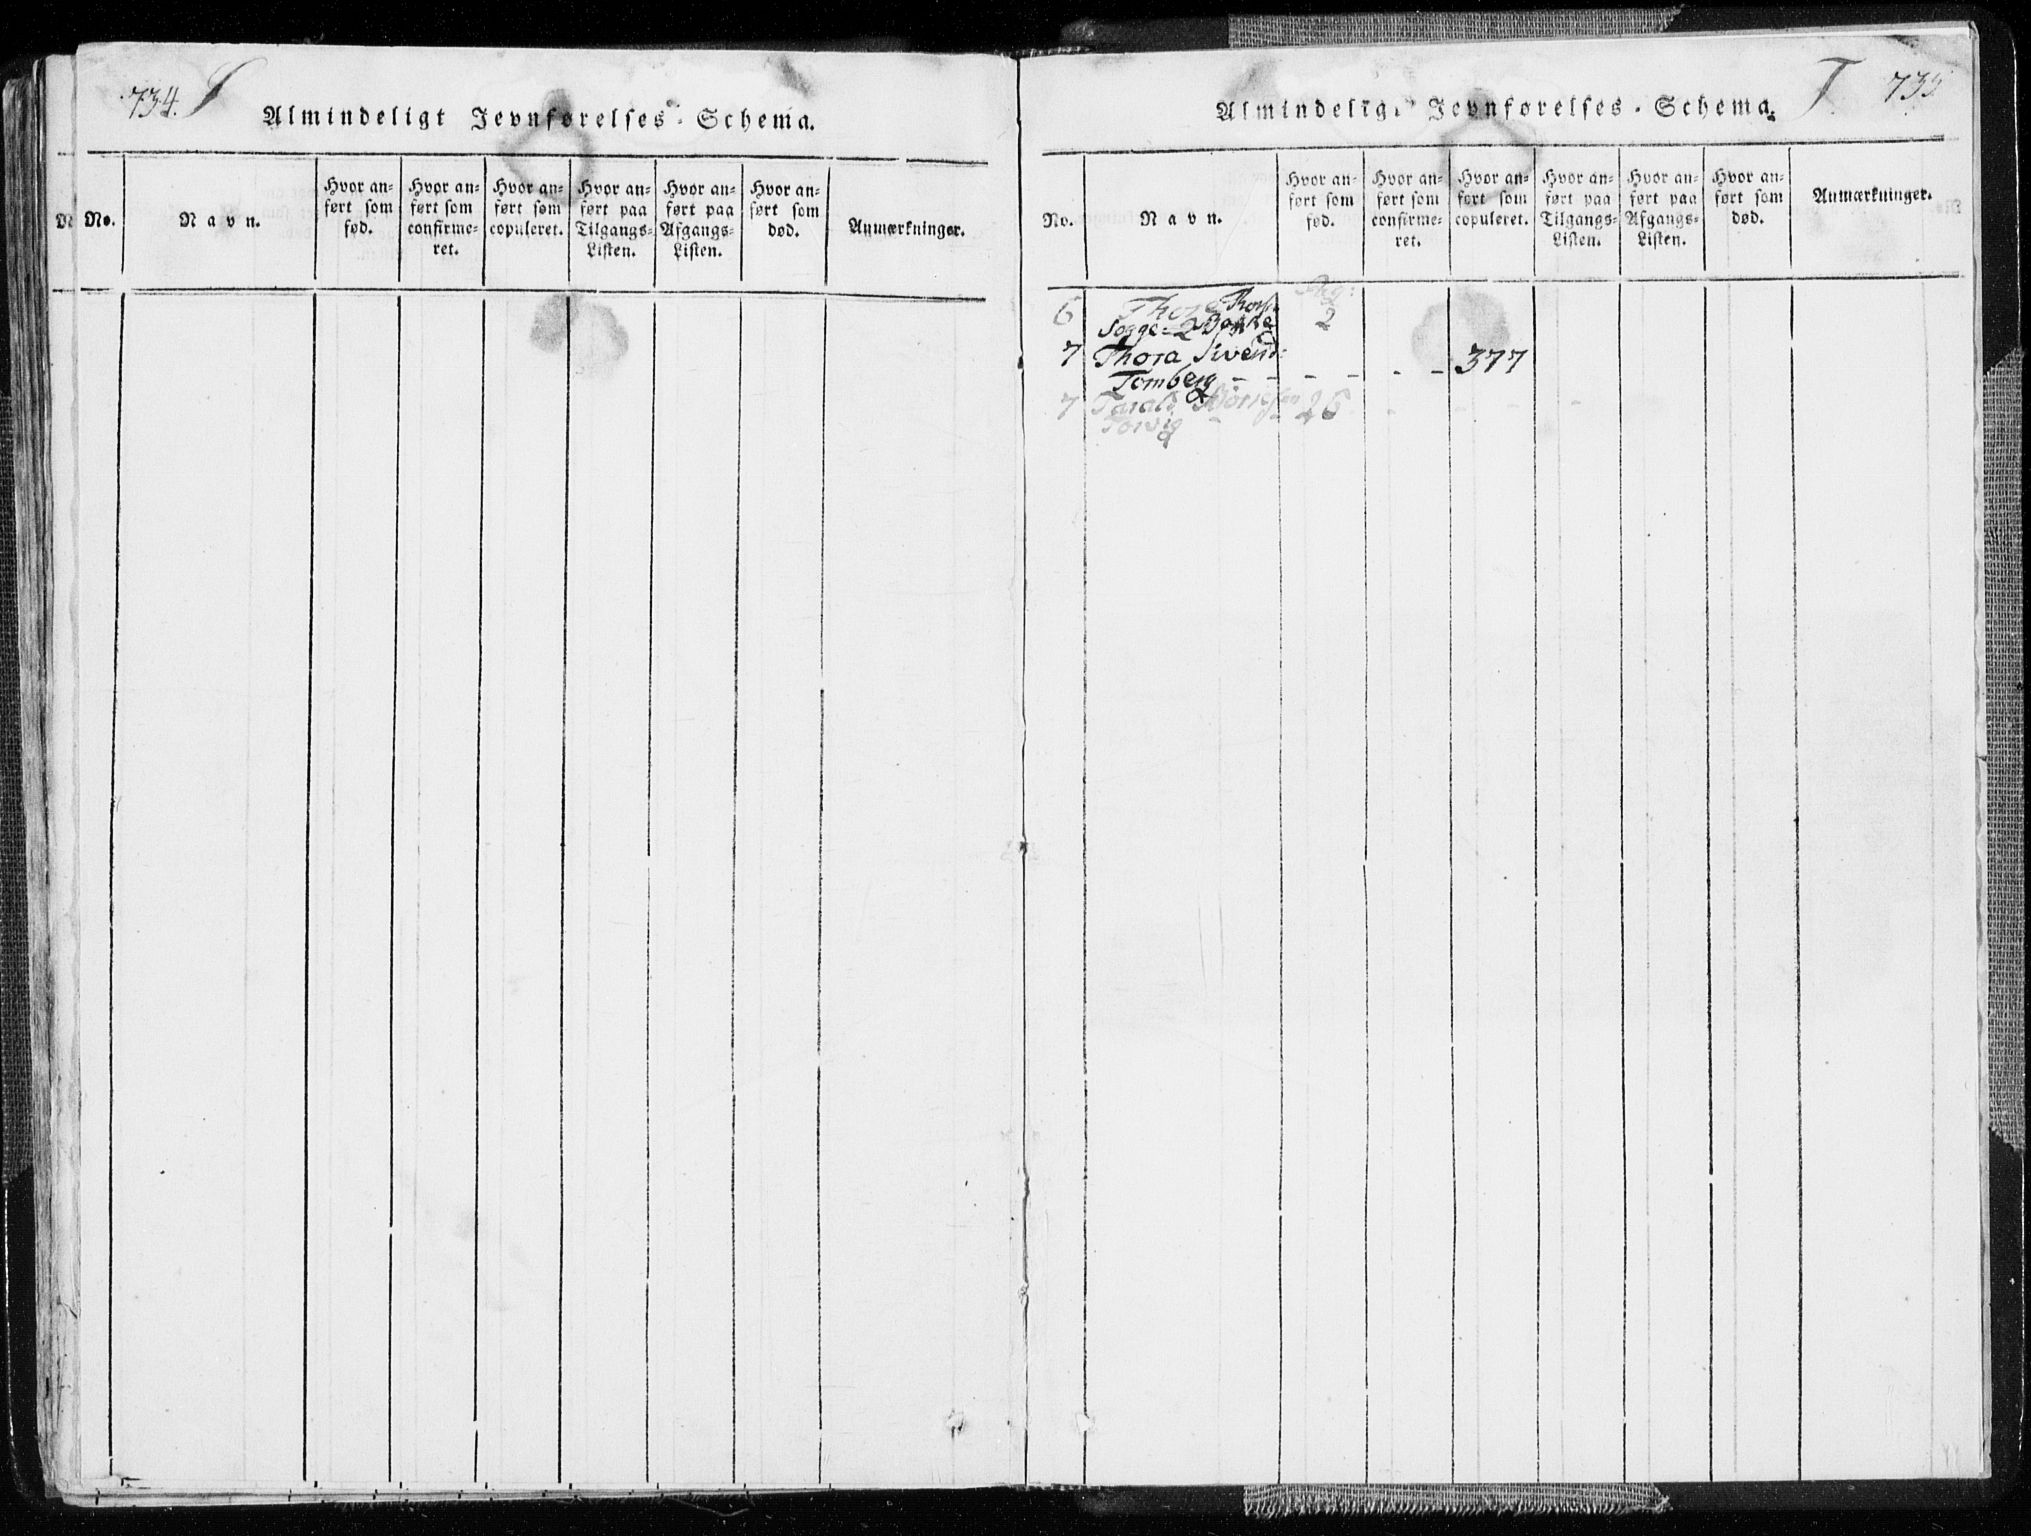 734. S
Almindeligt Jevnførelses-Schema.
No.
Navn.
Hvor an-
ført som
fød.
Hvor an-
ført som
confirme-
ret.
Hvor an-
ført som
copuleret.
Hvor an-
ført paa
Tilgangs-
Listen.
Hvor an-
ført paa
Afgangs-
Listen.
Hvor an-
ført som
død.
Anmærkninger.
T 735
Almindeligt Jevnførelses-Schema.
No.
Navn.
Hvor an-
ført som
fød.
Hvor an-
ført som
confirme-
ret.
Hvor an-
ført som
copuleret.
Hvor an-
ført paa
Tilgangs-
Listen.
Hvor an-
ført paa
Afgangs-
Listen.
Hvor an-
ført som
død.
Anmærkninger.
Pag:
6 Thore 2
7 Thora Svend: 377
Tomberg
7 Tarald 26
Torvig